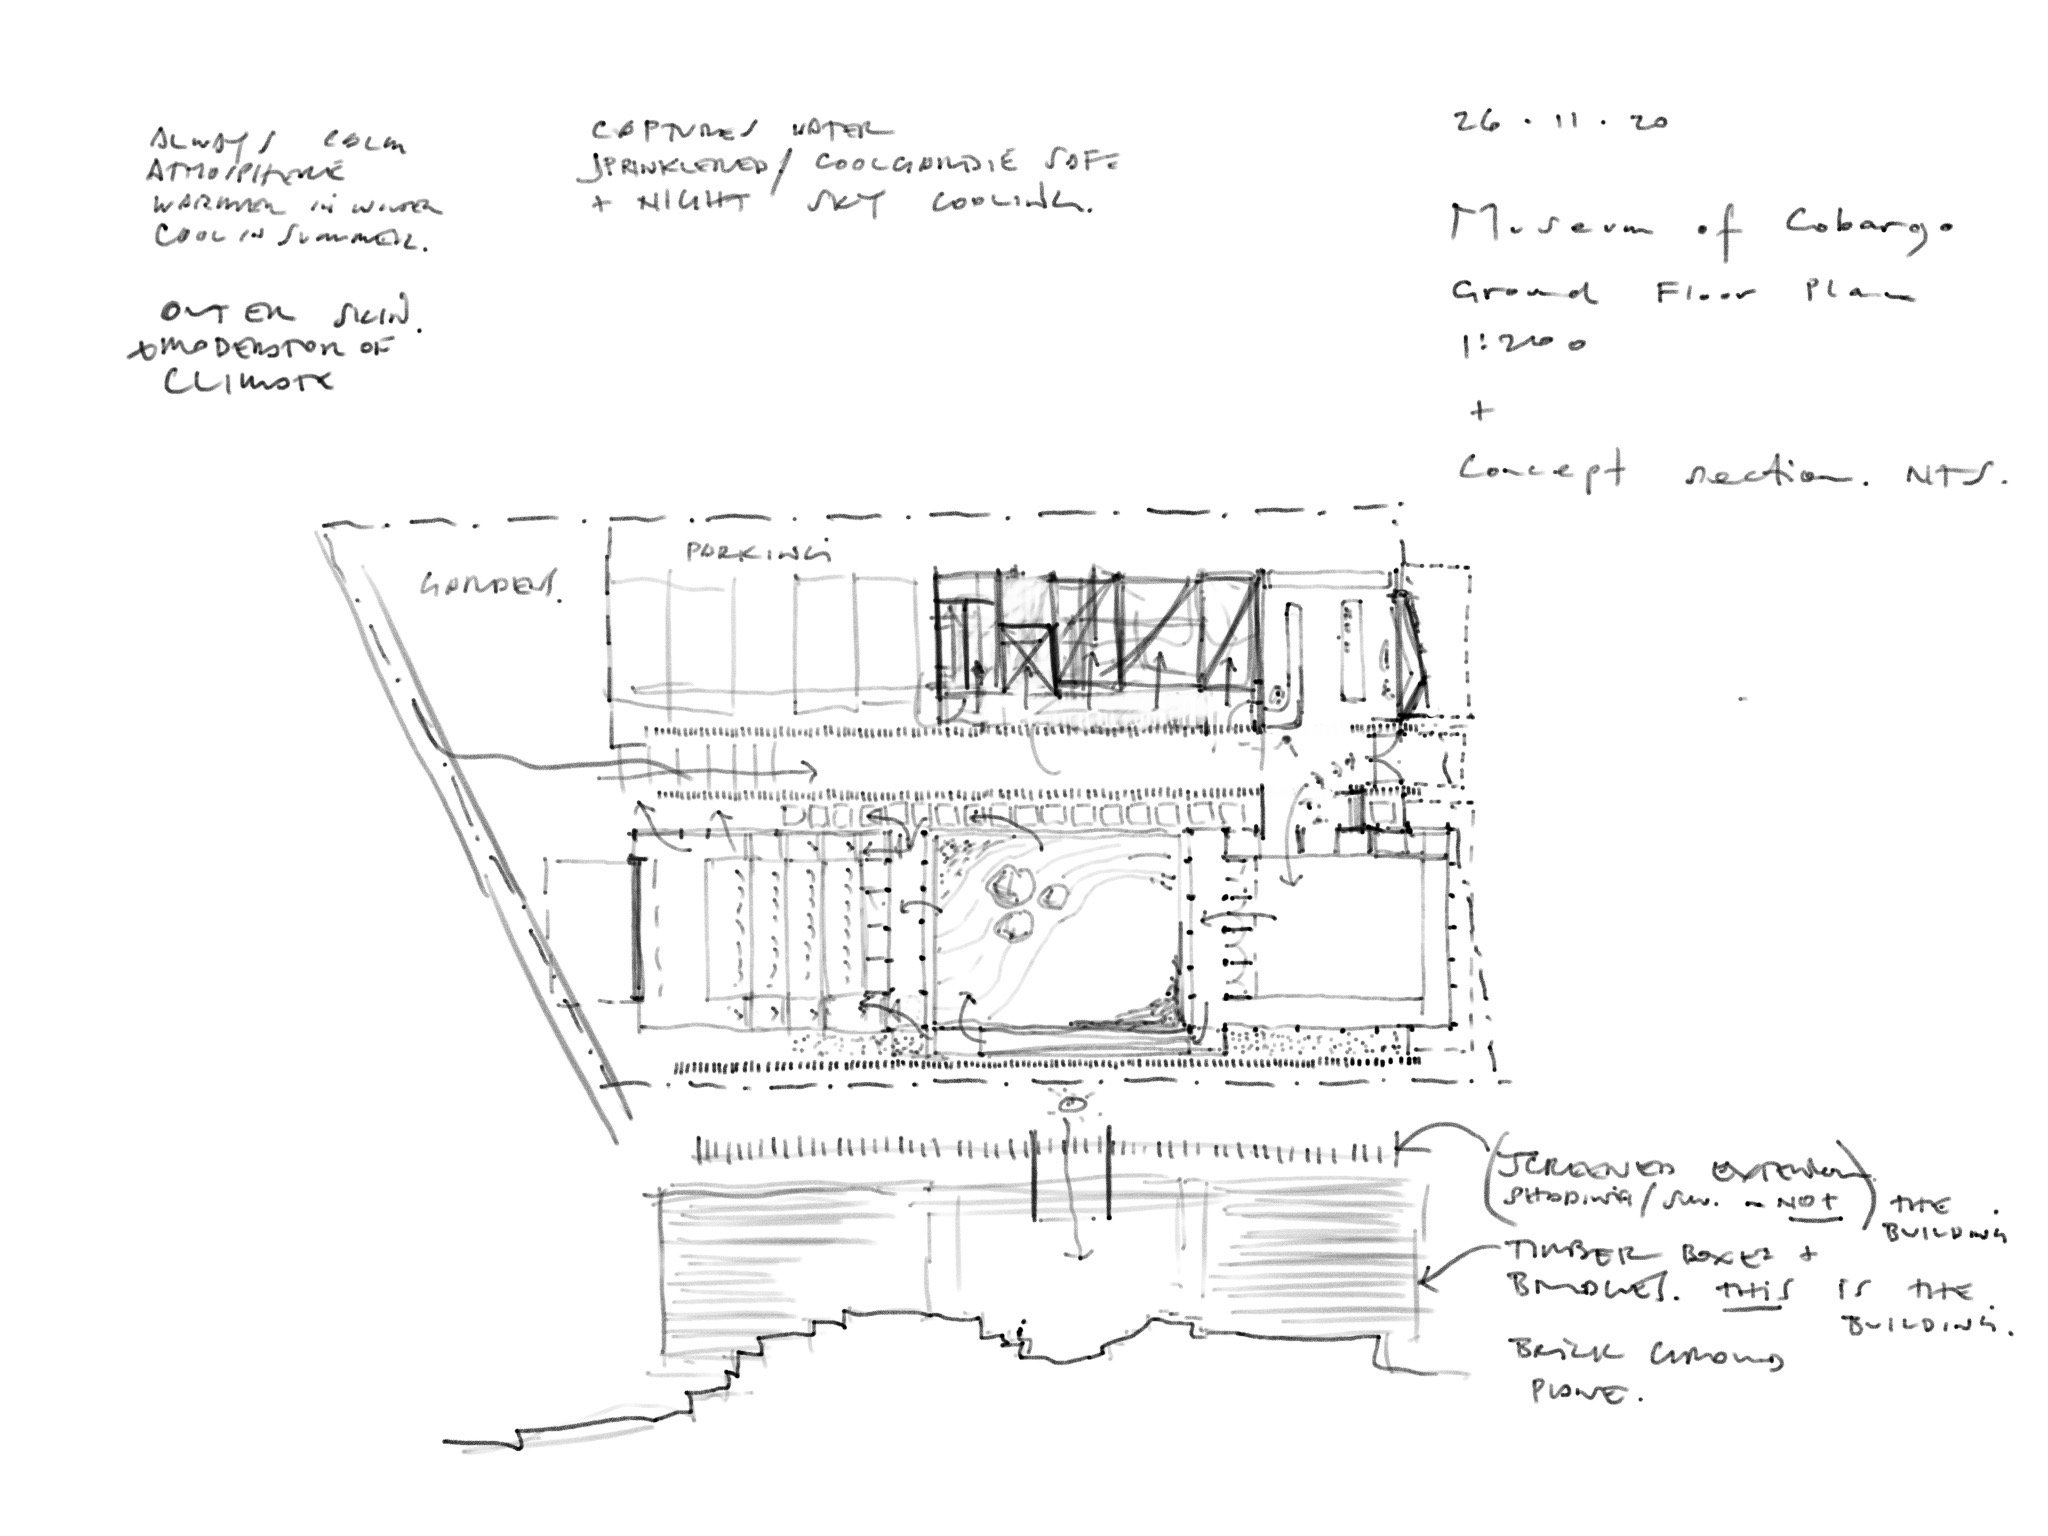 ALWAYS CALM
ATMOSPHERE
WARMER IN WINTER
COOL IN SUMMER.
OUTER SKIN.
MODERATOR OF
CLIMATE
CAPTURES WATER
SPRINKLERED / COOLGARDIE SAFE
+ NIGHT SKY COOLING.
26 . 11 . 20
Museum of Cobargo
Ground Floor Plan
1:200
+
Concept section. NTS.
PARKING
GARDEN.
(SCREENED EXTERIOR
SHADING / SUN. - NOT) THE
BUILDING
TIMBER BOXES +
BRIDGES. THIS IS THE
BUILDING.
BRICK GROUND
PLANE.